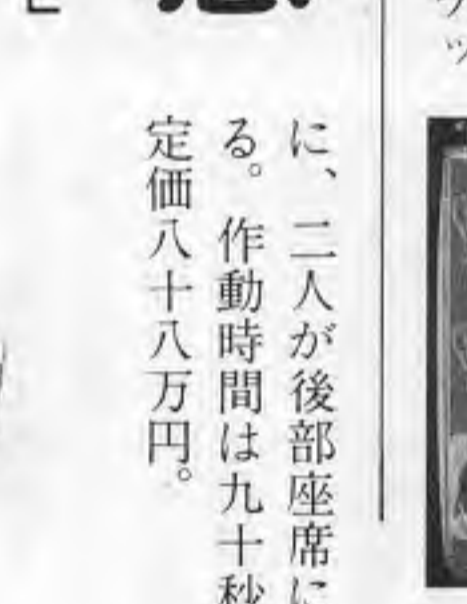 に、二人が後部座席に
る。作動時間は九十秒
定価八十八万円。